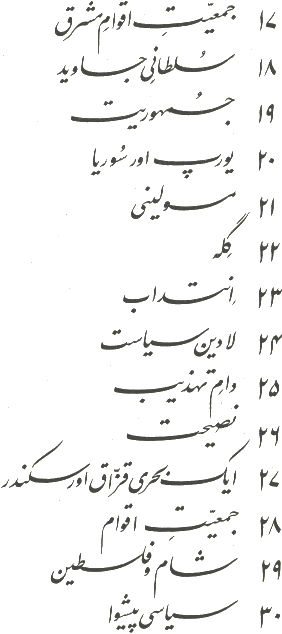 ۱۷ جمعیّتِ اقوامِ مشرق
۱۸ سُلطانیِ جاوید
۱۹ جمہُوریت
۲۰ یورپ اور سُوریا
۲۱ مسولینی
۲۲ گِلہ
۲۳ اِنتداب
۲۴ لادین سیاست
۲۵ دامِ تہذیب
۲۶ نصیحت
۲۷ ایک بحری قزّاق اور سکندر
۲۸ جمعیّتِ اقوام
۲۹ شام و فلسطین
۳۰ سیاسی پیشوا